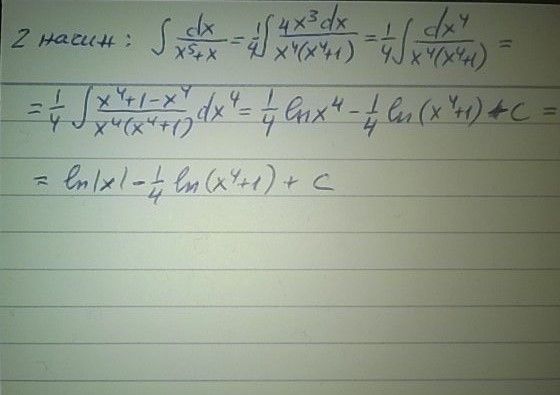 2 начин: ∫ dx/(x⁵+x) = 1/4 ∫ 4x³dx/(x⁴(x⁴+1)) = 1/4 ∫ dx⁴/(x⁴(x⁴+1)) =
= 1/4 ∫ (x⁴+1-x⁴)/(x⁴(x⁴+1)) dx⁴ = 1/4 ln x⁴ - 1/4 ln(x⁴+1) + C =
= ln|x| - 1/4 ln(x⁴+1) + C